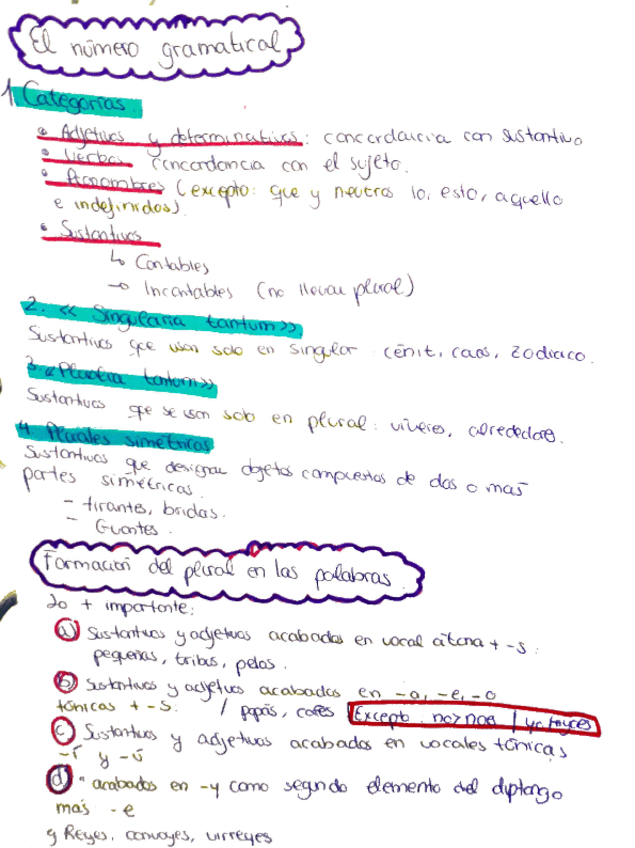 El número gramatical
1 Categorías.
• Adjetivos y determinativos: concordancia con sustantivo
• Verbos concordancia con el sujeto.
• Pronombres (excepto: que y neutros lo, esto, aquello
e indefinidos).
• Sustantivos
↳ Contables
→ Incontables (no llevan plural)
2. << Singularia tantum>>
Sustantivos que usan solo en singular: cénit, caos, zodiaco.
3 <<Pluralia tantum>>
Sustantivos que se usan solo en plural: víveres, alrededores.
4. Plurales simétricos
Sustantivos que designan objetos compuestos de dos o más
partes simétricas.
- tirantes, bridas.
- Guantes.
Formación del plural en las palabras.
Lo + importante:
a) Sustantivos y adjetivos acabados en vocal átona + -s:
pequeñas, tribus, pelos.
b) Sustantivos y adjetivos acabados en -a, -e, -o
tónicas + -s: / papás, cafés Excepto. no>noes / ya>ayes
c) Sustantivos y adjetivos acabados en vocales tónicas
-í y -ú
d) " acabados en -y como segundo elemento del diptongo
más -e
g Reyes, convoyes, virreyes